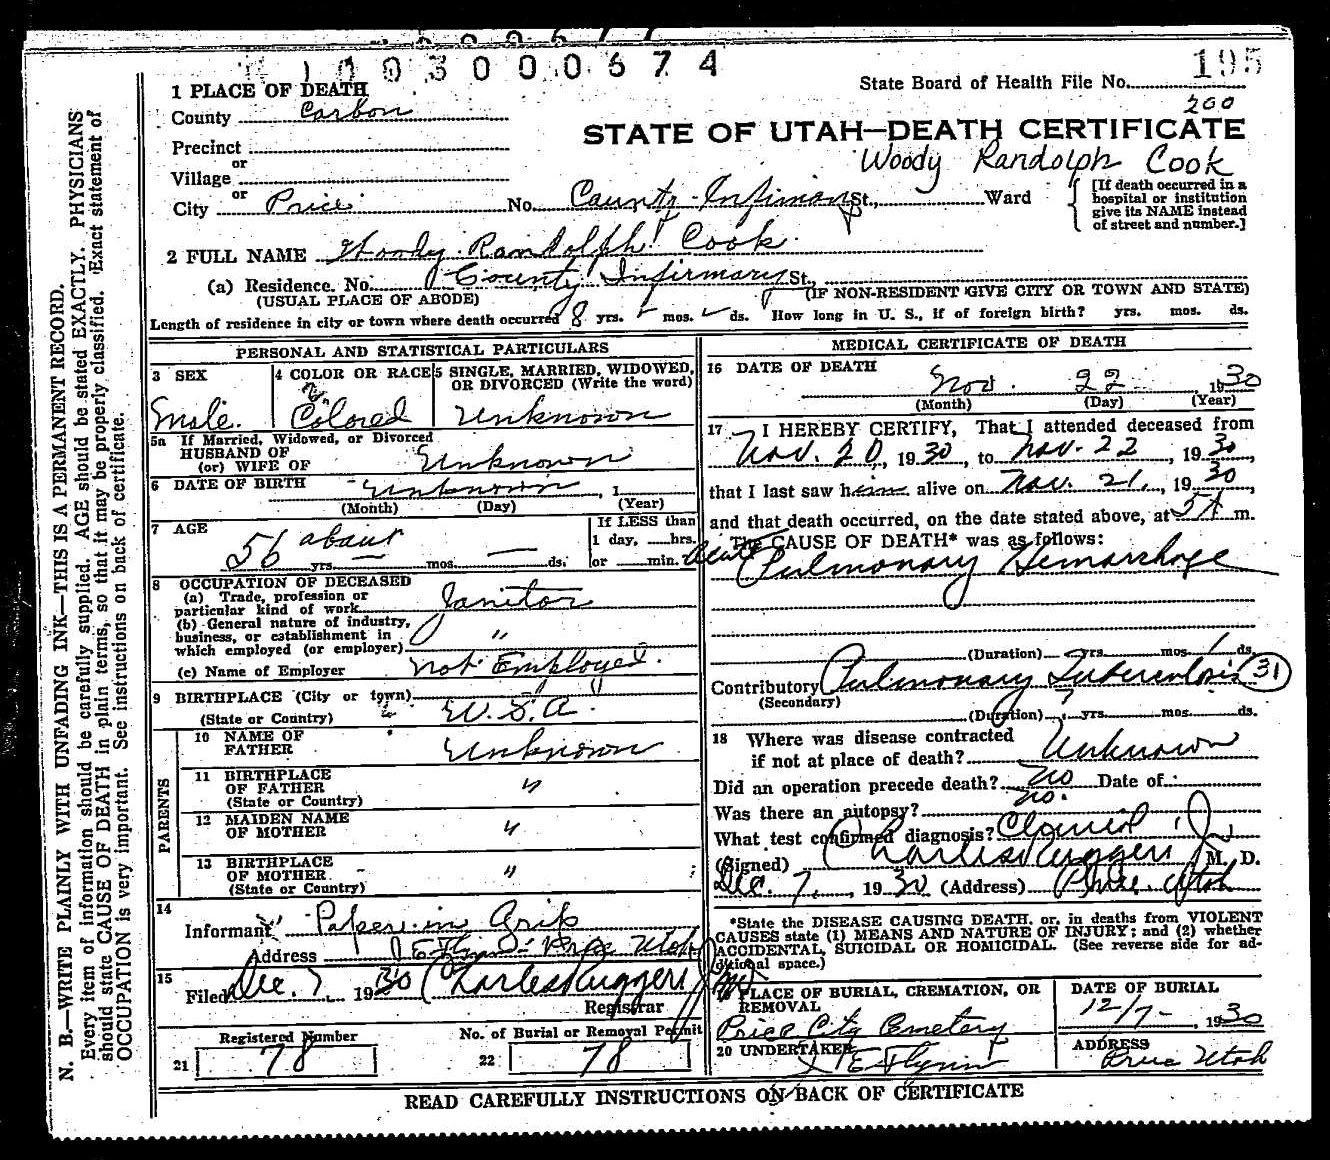 1003000674
195
State Board of Health File No.
200
1 PLACE OF DEATH
County Carbon
STATE OF UTAH—DEATH CERTIFICATE
Precinct
or
Village
Woody Randolph Cook
or
City Price No. County Infirmary St., Ward
[If death occurred in a hospital or institution give its NAME instead of street and number.]
2 FULL NAME Woody Randolph Cook
(a) Residence. No. County Infirmary St.,
(USUAL PLACE OF ABODE) (IF NON-RESIDENT GIVE CITY OR TOWN AND STATE)
Length of residence in city or town where death occurred 8 yrs. mos. ds. How long in U. S., if of foreign birth? yrs. mos. ds.
PERSONAL AND STATISTICAL PARTICULARS
3 SEX
Male.
4 COLOR OR RACE
Colored
5 SINGLE, MARRIED, WIDOWED, OR DIVORCED (Write the word)
Unknown
5a If Married, Widowed, or Divorced
HUSBAND OF
(or) WIFE OF Unknown
6 DATE OF BIRTH Unknown, 1
(Month) (Day) (Year)
7 AGE
56 about yrs. mos. ds.
If LESS than
1 day, hrs.
or min.
8 OCCUPATION OF DECEASED
(a) Trade, profession or
particular kind of work Janitor
(b) General nature of industry,
business, or establishment in
which employed (or employer) "
(c) Name of Employer not Employed.
9 BIRTHPLACE (City or town) " "
(State or Country) U.S.A.
PARENTS
10 NAME OF
FATHER Unknown
11 BIRTHPLACE
OF FATHER "
(State or Country)
12 MAIDEN NAME
OF MOTHER "
13 BIRTHPLACE
OF MOTHER "
(State or Country)
14
Informant Papers in Grip
Address J E Flynn - Price Utah
15
Filed Dec. 7, 1930 Charles Ruggeri
Registrar
Registered Number
21 78
No. of Burial or Removal Permit
22 78
MEDICAL CERTIFICATE OF DEATH
16 DATE OF DEATH
Nov. 22, 1930
(Month) (Day) (Year)
17 I HEREBY CERTIFY, That I attended deceased from
Nov. 20, 1930, to Nov. 22, 1930,
that I last saw him alive on Nov. 21, 1930,
and that death occurred, on the date stated above, at 5A m.
The CAUSE OF DEATH* was as follows:
Acute Pulmonary Hemorrhage
(Duration) yrs. mos. 1 ds.
Contributory Pulmonary Tuberculosis 31
(Secondary)
(Duration) ? yrs. mos. ds.
18 Where was disease contracted
if not at place of death? Unknown
Did an operation precede death? no Date of
Was there an autopsy? no.
What test confirmed diagnosis? Clinical
(Signed) Charles Ruggeri M. D.
Dec. 7, 1930 (Address) Price Utah
*State the DISEASE CAUSING DEATH, or, in deaths from VIOLENT
CAUSES state (1) MEANS AND NATURE OF INJURY; and (2) whether
ACCIDENTAL, SUICIDAL OR HOMICIDAL. (See reverse side for ad-
ditional space.)
PLACE OF BURIAL, CREMATION, OR
REMOVAL
Price City Cemetery
DATE OF BURIAL
12/7-, 1930
20 UNDERTAKER
J E Flynn
ADDRESS
Price Utah
READ CAREFULLY INSTRUCTIONS ON BACK OF CERTIFICATE
N. B.—WRITE PLAINLY WITH UNFADING INK—THIS IS A PERMANENT RECORD.
Every item of information should be carefully supplied. AGE should be stated EXACTLY. PHYSICIANS
should state CAUSE OF DEATH in plain terms, so that it may be properly classified. Exact statement of
OCCUPATION is very important. See instructions on back of certificate.